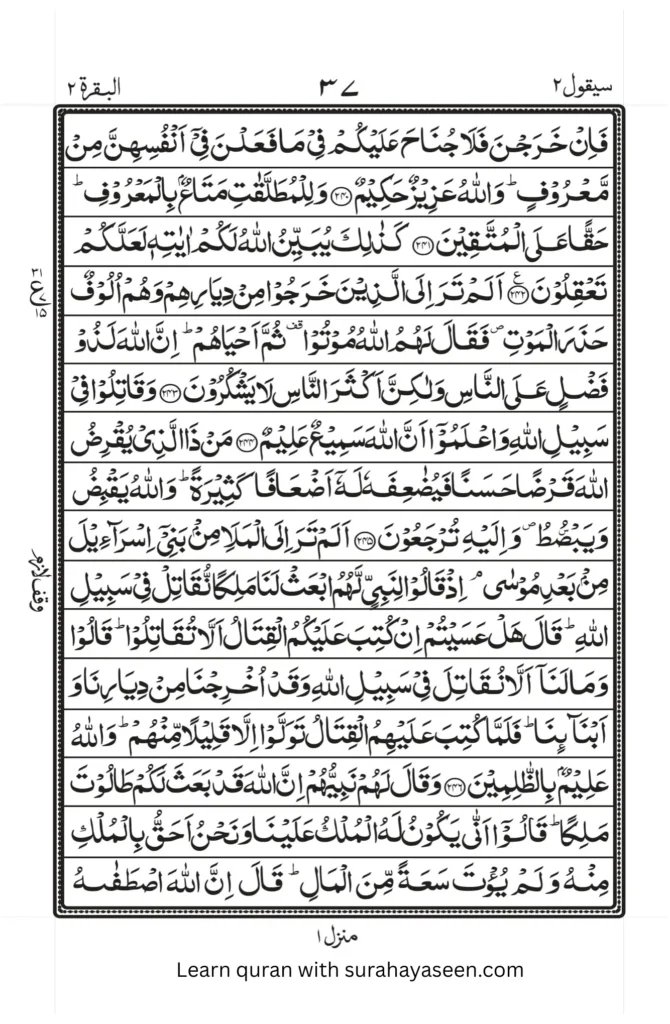 سيقول ٢ ٣٧ البقرة ٢
فَاِنْ خَرَجْنَ فَلَا جُنَاحَ عَلَيْكُمْ فِيْ مَا فَعَلْنَ فِيْٓ اَنْفُسِهِنَّ مِنْ
مَّعْرُوْفٍ ؕ وَاللّٰهُ عَزِيْزٌ حَكِيْمٌ ﴿۲۴۰﴾ وَلِلْمُطَلَّقٰتِ مَتَاعٌۢ بِالْمَعْرُوْفِ ؕ
حَقًّا عَلَى الْمُتَّقِيْنَ ﴿۲۴۱﴾ كَذٰلِكَ يُبَيِّنُ اللّٰهُ لَكُمْ اٰيٰتِهٖ لَعَلَّكُمْ
تَعْقِلُوْنَ ﴿۲۴۲﴾ ع اَلَمْ تَرَ اِلَى الَّذِيْنَ خَرَجُوْا مِنْ دِيَارِهِمْ وَهُمْ اُلُوْفٌ
حَذَرَ الْمَوْتِ ۪ فَقَالَ لَهُمُ اللّٰهُ مُوْتُوْا ۟ ثُمَّ اَحْيَاهُمْ ؕ اِنَّ اللّٰهَ لَذُوْ
فَضْلٍ عَلَى النَّاسِ وَلٰكِنَّ اَكْثَرَ النَّاسِ لَا يَشْكُرُوْنَ ﴿۲۴۳﴾ وَقَاتِلُوْا فِيْ
سَبِيْلِ اللّٰهِ وَاعْلَمُوْٓا اَنَّ اللّٰهَ سَمِيْعٌ عَلِيْمٌ ﴿۲۴۴﴾ مَنْ ذَا الَّذِيْ يُقْرِضُ
اللّٰهَ قَرْضًا حَسَنًا فَيُضٰعِفَهٗ لَهٗٓ اَضْعَافًا كَثِيْرَةً ؕ وَاللّٰهُ يَقْبِضُ
وَيَبْصُۜطُ ۪ وَاِلَيْهِ تُرْجَعُوْنَ ﴿۲۴۵﴾ اَلَمْ تَرَ اِلَى الْمَلَاِ مِنْۢ بَنِيْٓ اِسْرَآءِيْلَ
مِنْۢ بَعْدِ مُوْسٰى ۘ اِذْ قَالُوْا لِنَبِيٍّ لَّهُمُ ابْعَثْ لَنَا مَلِكًا نُّقَاتِلْ فِيْ سَبِيْلِ
اللّٰهِ ؕ قَالَ هَلْ عَسَيْتُمْ اِنْ كُتِبَ عَلَيْكُمُ الْقِتَالُ اَلَّا تُقَاتِلُوْا ؕ قَالُوْا
وَمَا لَنَآ اَلَّا نُقَاتِلَ فِيْ سَبِيْلِ اللّٰهِ وَقَدْ اُخْرِجْنَا مِنْ دِيَارِنَا وَ
اَبْنَآئِنَا ؕ فَلَمَّا كُتِبَ عَلَيْهِمُ الْقِتَالُ تَوَلَّوْا اِلَّا قَلِيْلًا مِّنْهُمْ ؕ وَاللّٰهُ
عَلِيْمٌۢ بِالظّٰلِمِيْنَ ﴿۲۴۶﴾ وَقَالَ لَهُمْ نَبِيُّهُمْ اِنَّ اللّٰهَ قَدْ بَعَثَ لَكُمْ طَالُوْتَ
مَلِكًا ؕ قَالُوْٓا اَنّٰى يَكُوْنُ لَهُ الْمُلْكُ عَلَيْنَا وَنَحْنُ اَحَقُّ بِالْمُلْكِ
مِنْهُ وَلَمْ يُؤْتَ سَعَةً مِّنَ الْمَالِ ؕ قَالَ اِنَّ اللّٰهَ اصْطَفٰىهُ
وقف لازم
منزل ١
Learn quran with surahayaseen.com